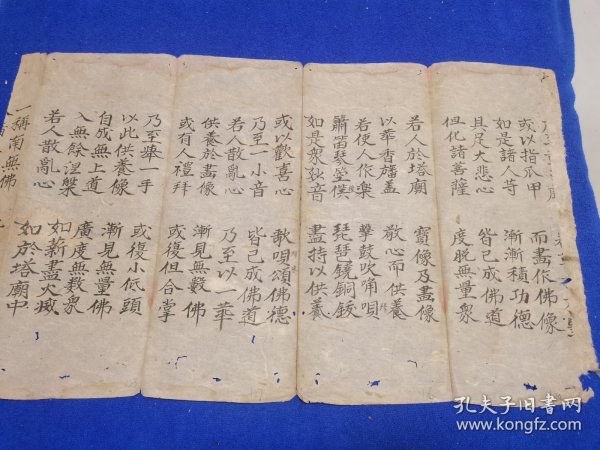 或以指爪甲　而畫作佛像
如是諸人等　漸漸積功德
具足大悲心　皆已成佛道
但化諸菩薩　度脫無量眾
若人於塔廟　寶像及畫像
以華香旛蓋　敬心而供養
若使人作樂　擊鼓吹角唄
簫笛琴箜　琵琶鐃銅鈸
如是眾妙音　盡持以供養
或以歡喜心　歌唄頌佛德
乃至一小音　皆已成佛道
若人散亂心　乃至以一華
供養於畫像　漸見無數佛
或有人禮拜　或復但合掌
乃至舉一手　或復小低頭
以此供養像　漸見無量佛
自成無上道　廣度無數眾
入無餘涅槃　如薪盡火滅
若人散亂心　如於塔廟中
一稱南無佛
孔夫子旧书网
www.kongfz.com